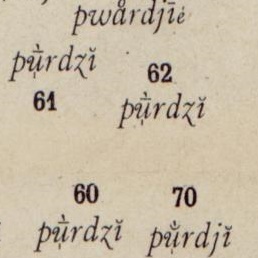 pwårdjīė
pụ̄̀rdzĭ
62
61
pụ̄̀rdzĭ
60
70
pụ̄̀rdzĭ
pụ̄̀rdjĭ